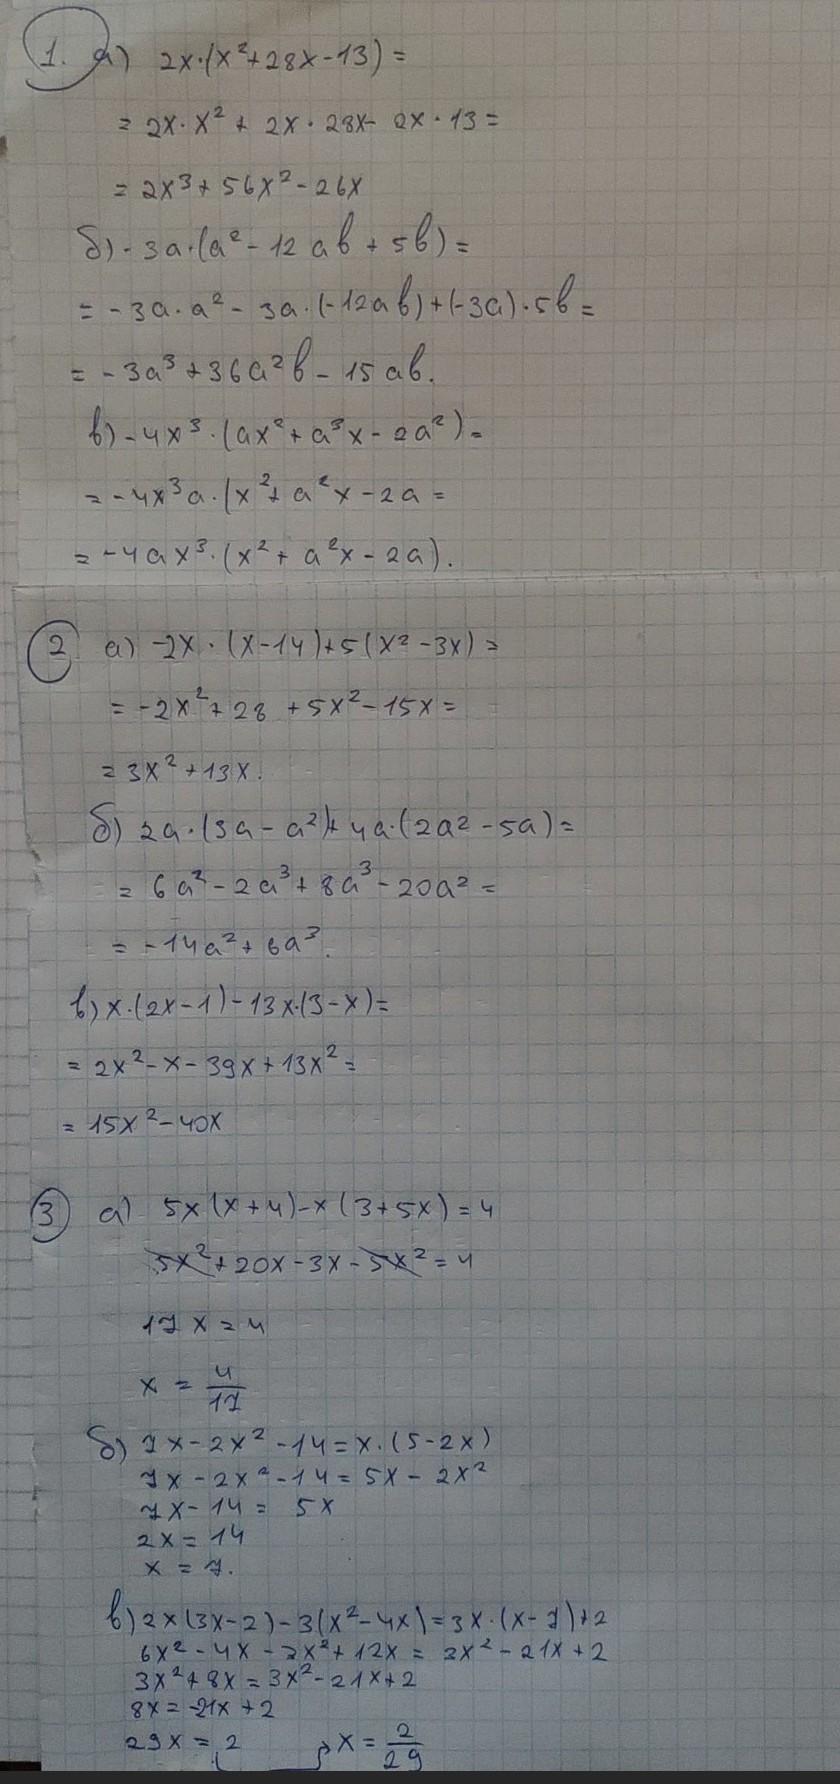 1. а) 2x·(x²+28x-13)=
= 2x·x² + 2x·28x- 2x·13=
= 2x³+56x²-26x
б) -3a·(a²-12ab+5b)=
= -3a·a²-3a·(-12ab)+(-3a)·5b=
= -3a³+36a²b-15ab.
в) -4x³·(ax²+a³x-2a²)=
= -4x³a·(x²+a²x-2a=
= -4ax³·(x²+a²x-2a).
2 а) -2x·(x-14)+5(x²-3x)=
= -2x²+28 +5x²-15x=
= 3x²+13x.
б) 2a·(3a-a²)+4a·(2a²-5a)=
= 6a²-2a³+8a³-20a²=
= -14a²+6a³.
в) x·(2x-1)-13x·(3-x)=
= 2x²-x-39x+13x²=
= 15x²-40x
3 а) 5x(x+4)-x(3+5x)=4
5x²+20x-3x-5x²=4
17x=4
x = 4/17
б) 7x-2x²-14=x·(5-2x)
7x-2x²-14=5x-2x²
7x-14= 5x
2x=14
x=7.
в) 2x(3x-2)-3(x²-4x)=3x·(x-7)+2
6x²-4x-3x²+12x= 3x²-21x+2
3x²+8x=3x²-21x+2
8x=-21x+2
29x=2 x=2/29